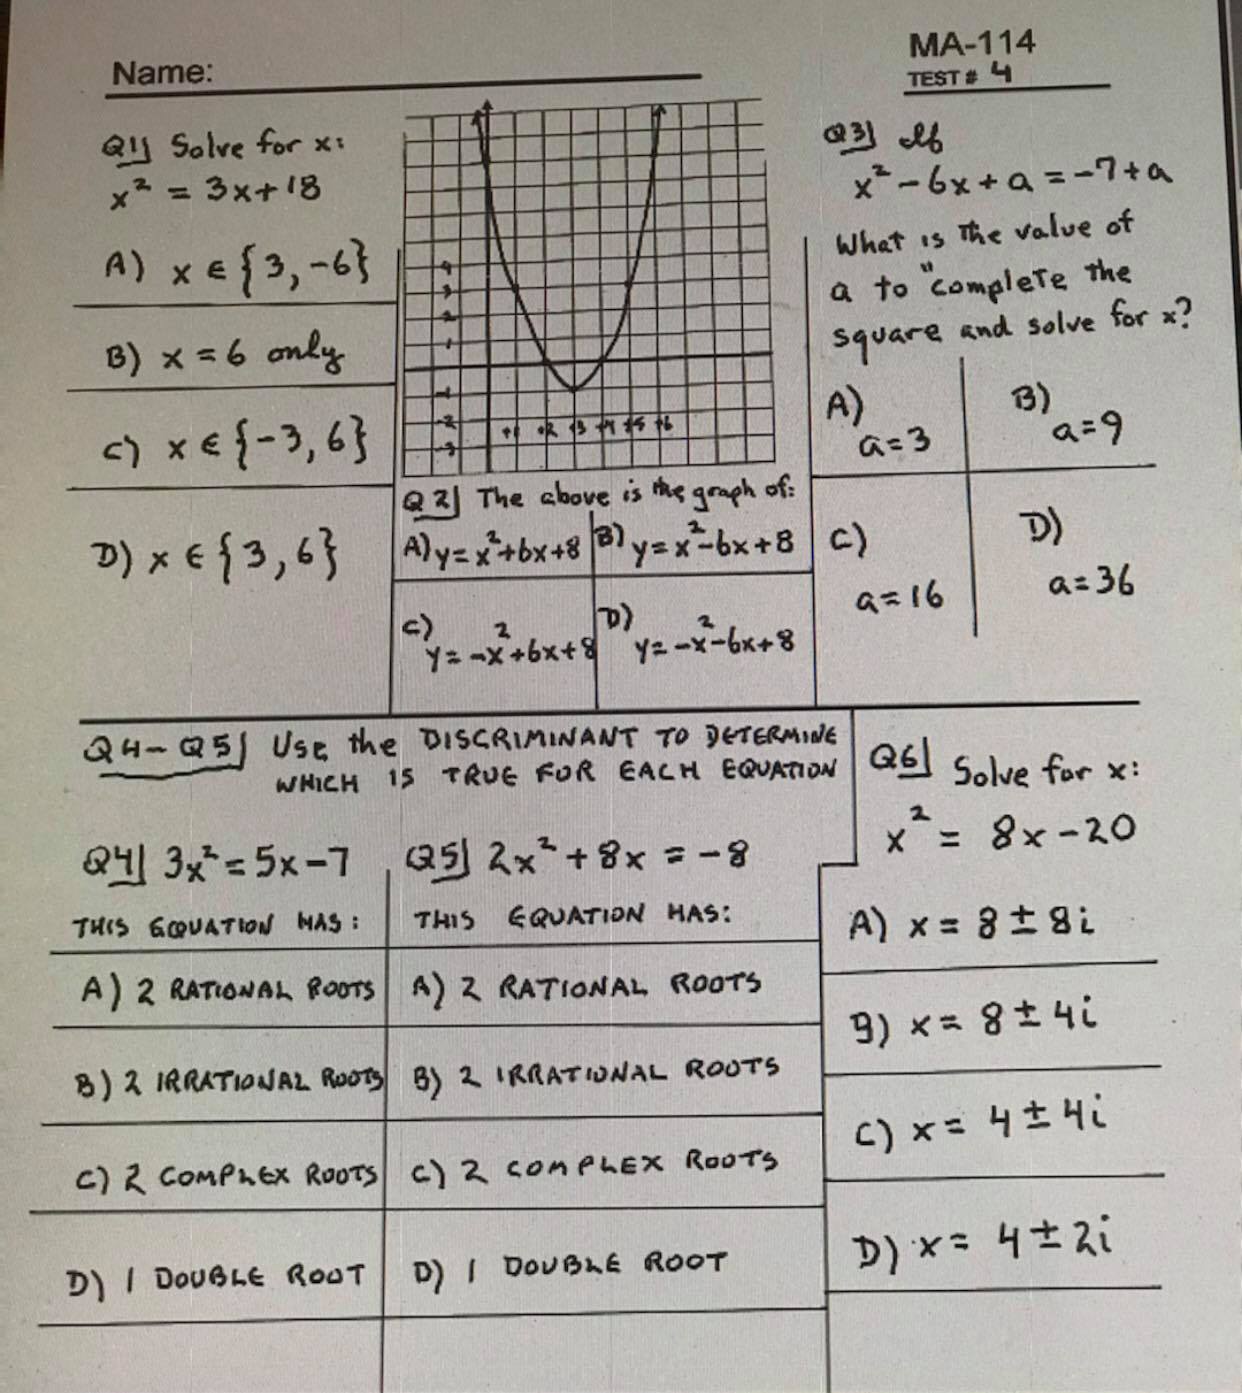 Name:
MA-114
TEST # 4
Q1) Solve for x:
x² = 3x+18
A) x ∈ {3,-6}
B) x = 6 only
C) x ∈ {-3,6}
D) x ∈ {3,6}
4
3
2
1
-1
-2
-3
+1 +2 +3 +4 +5 +6
Q2) The above is the graph of:
A) y=x²+6x+8
B) y=x²-6x+8
C) y=-x²+6x+8
D) y=-x²-6x+8
Q3) If
x²-6x+a=-7+a
What is the value of
a to "complete the
square and solve for x?
A) a=3
B) a=9
C) a=16
D) a=36
Q4-Q5) Use the DISCRIMINANT TO DETERMINE
WHICH IS TRUE FOR EACH EQUATION
Q4) 3x²=5x-7
THIS EQUATION HAS:
A) 2 RATIONAL ROOTS
B) 2 IRRATIONAL ROOTS
C) 2 COMPLEX ROOTS
D) 1 DOUBLE ROOT
Q5) 2x²+8x = -8
THIS EQUATION HAS:
A) 2 RATIONAL ROOTS
B) 2 IRRATIONAL ROOTS
C) 2 COMPLEX ROOTS
D) 1 DOUBLE ROOT
Q6) Solve for x:
x² = 8x-20
A) x = 8 ± 8i
B) x = 8 ± 4i
C) x = 4 ± 4i
D) x = 4 ± 2i